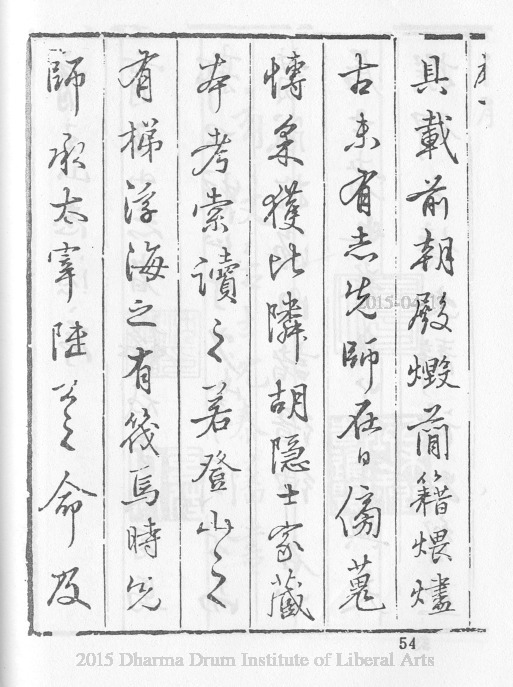 具載前朝殿燬蕳籍煨燼
古未有志先師在日傍蒐
慱采獲比隣胡隐士家藏
本考索讀之若登山之
有梯浮海之有筏焉時先
師承太宰陸公之命及
54
2015 Dharma Drum Institute of Liberal Arts